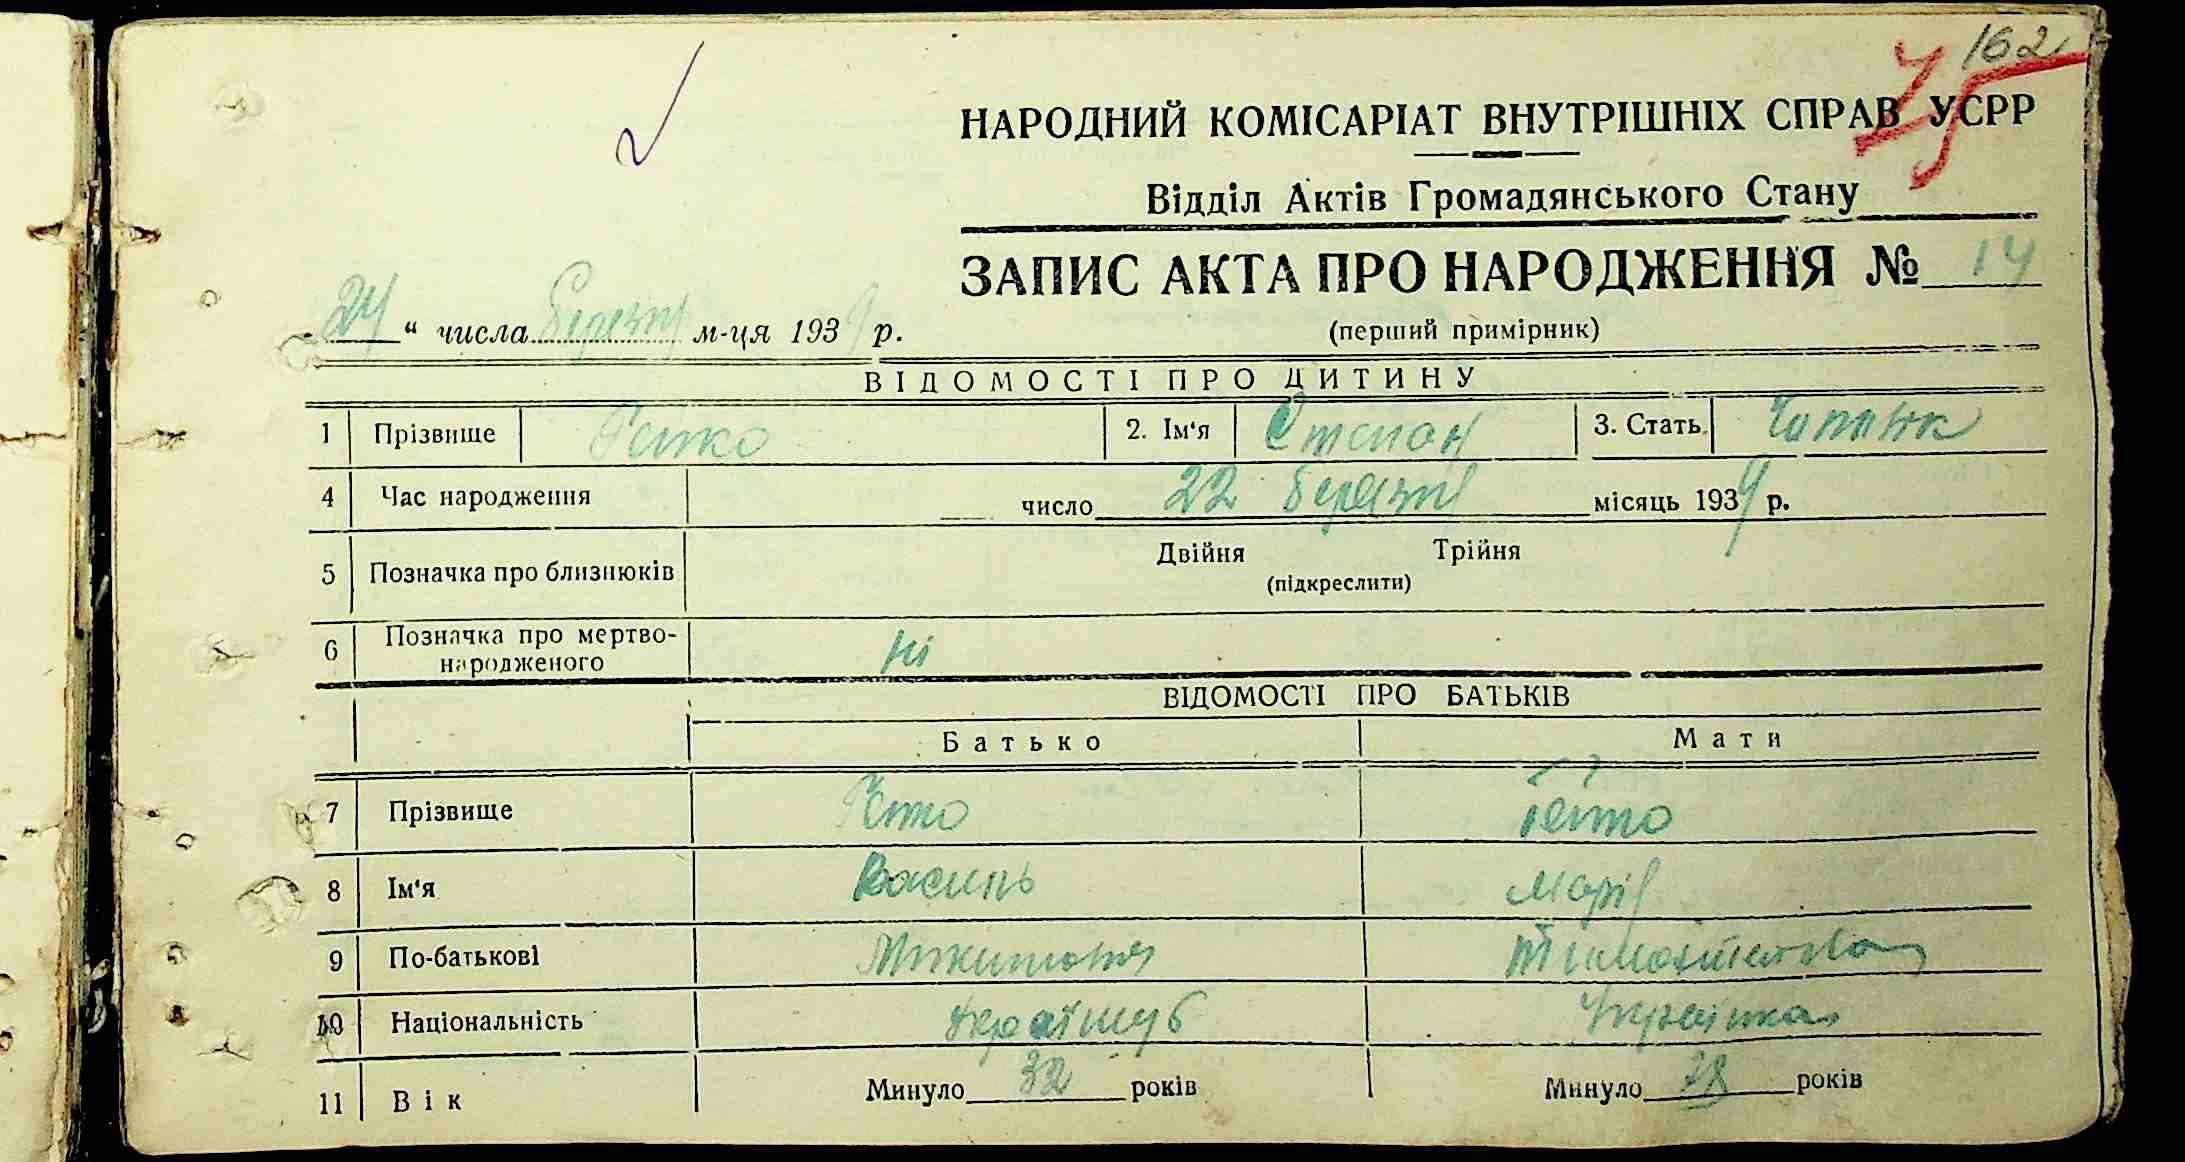 162
75
НАРОДНИЙ КОМІСАРІАТ ВНУТРІШНІХ СПРАВ УСРР
Відділ Актів Громадянського Стану
ЗАПИС АКТА ПРО НАРОДЖЕННЯ № 14
24 “ числа Березня м-ця 1939 р.
(перший примірник)
ВІДОМОСТІ ПРО ДИТИНУ
1 Прізвище 2. Ім'я Степан 3. Стать.
4 Час народження число 22 березня місяць 1939 р.
5 Позначка про близнюків Двійня Трійня
(підкреслити)
6 Позначка про мертво-
народженого ні
ВІДОМОСТІ ПРО БАТЬКІВ
Батько Мати
7 Прізвище
8 Ім'я Василь Марія
9 По-батькові Микитович
10 Національність Українка
11 Вік Минуло 32 років Минуло 28 років